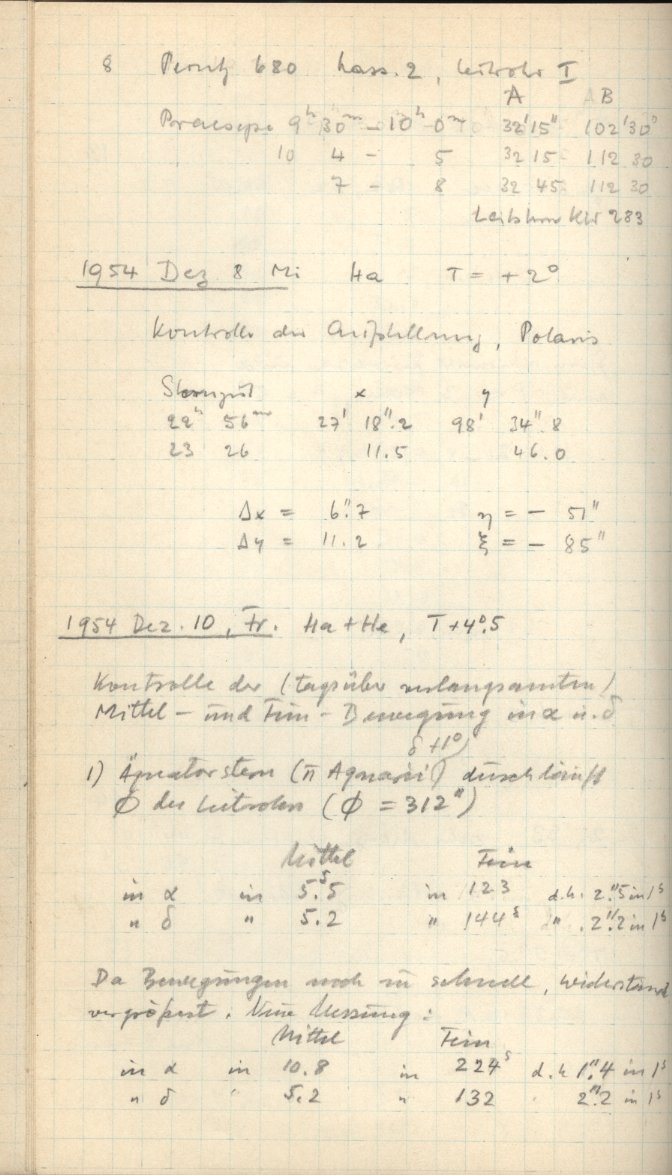 8 Perutz 680 Kass. 2, Leitrohr I
A B
Praesepe 9h 30m – 10h 0m 32'15" 102'30"
10 4 – 5 32 15 112 30
7 – 8 32 45 112 30
Leitstern KW 283
1954 Dez 8 Mi Ha T = + 2°
Kontrolle der Aufstellung, Polaris
Sternzeit x y
22h 56m 27' 18".2 98' 34".8
23 26 11.5 46.0
Δx = 6".7 η = – 51"
Δy = 11.2 ξ = – 85"
1954 Dez. 10, Fr. Ha + He, T + 4°.5
Kontrolle der (tagsüber verlangsamten)
Mittel – und Fein – Bewegung in α u. δ
δ +1°
1) Äquatorstern (π Aquarii) durchläuft
Φ des Leitrohrs (Φ = 312")
Mittel Fein
in α in 5.s5 in 123 d.h. 2".5 in 1s
" δ " 5.2 " 144s " 2".2 in 1s
Da Bewegungen noch zu schnell, Widerstand
vergrößert. Neue Messung:
Mittel Fein
in α in 10.8 in 224s d.h 1".4 in 1s
" δ " 5.2 " 132 2".2 in 1s